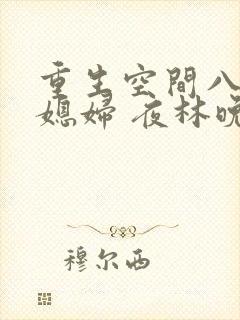 重生空間八
媳婦 夜林晚
穆尔西